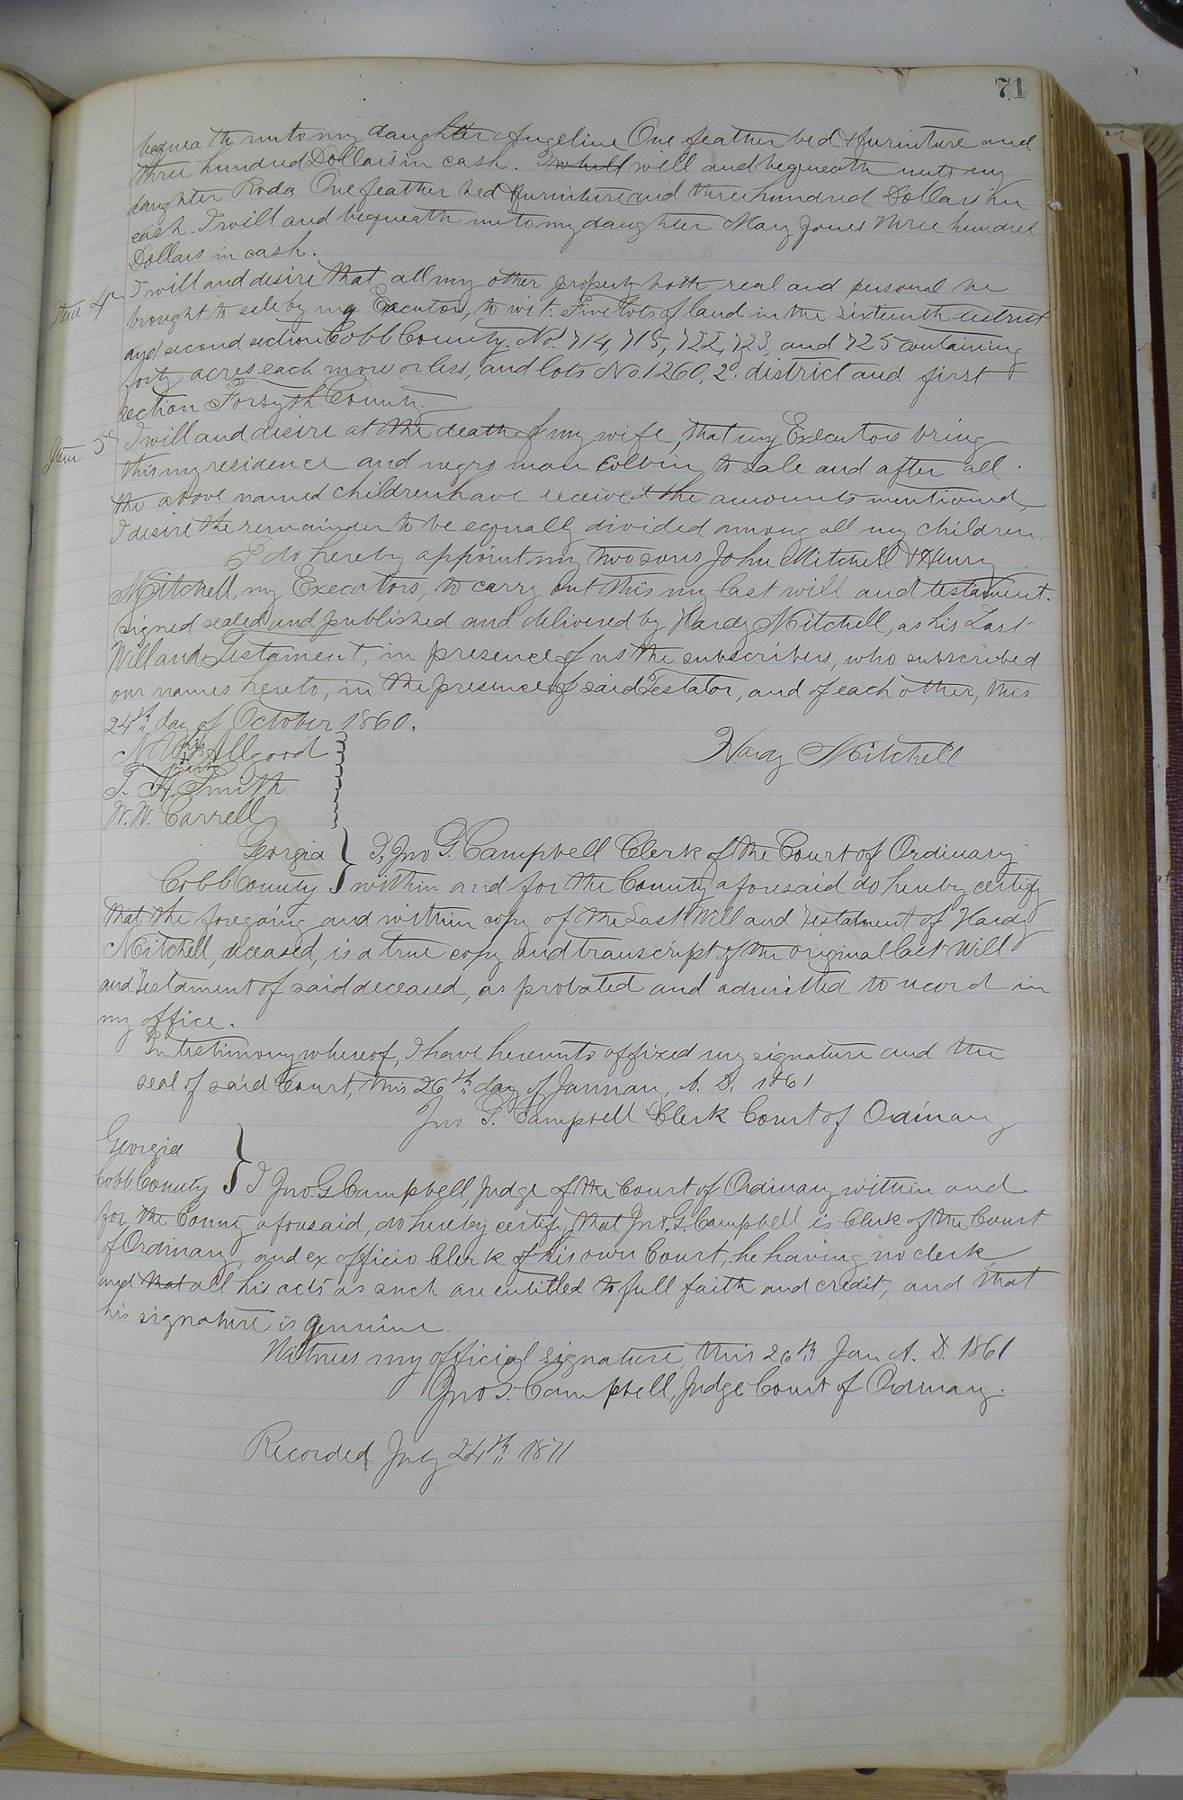 71
bequeath unto my daughter Angeline One feather bed & furniture and
three hundred Dollars in cash. I will and bequeath unto my
daughter Roda One feather bed & furniture and three hundred Dollars in
cash. I will and bequeath unto my daughter Mary Jones three hundred
Dollars in cash.
Item 4th I will and desire that all my other property both real and personal be
brought to sale by my Executors, to wit: Five lots of land in the sixteenth district
and second section Cobb County. No. 714, 715, 722, 723, and 725 containing
forty acres each more or less, and lots No. 1260, 2d. district and first
section Forsyth County.
Item 5th I will and desire at the death of my wife, that my Executors bring
this my residence and negro man Colvin to sale and after all
the above named children have received the amounts mentioned,
I desire the remainder to be equally divided among all my children.
I do hereby appoint my two sons John Mitchell & Henry
Mitchell, my Executors, to carry out this my last will and testament.
signed sealed and published and delivered by Hardy Mitchell, as his Last
Will and Testament, in presence of us the subscribers, who subscribed
our names hereto, in the presence of said Testator, and of each other, this
24th day of October 1860.
his Allgood Hardy Mitchell
mark
T. H. Smith
W. W. Carrell
Georgia } I, Jno G. Campbell Clerk of the Court of Ordinary
Cobb County } within and for the County aforesaid do hereby certify
that the foregoing and within copy of the Last Will and Testament of Hardy
Mitchell, deceased, is a true copy and transcript of the original last Will
and Testament of said deceased, as probated and admitted to record in
my office.
In testimony whereof, I have hereunto affixed my signature and the
seal of said Court, this 26th day of January, A. D. 1861
Jno G. Campbell Clerk Court of Ordinary
Georgia
Cobb County } I Jno. G. Campbell, Judge of the Court of Ordinary within and
for the County aforesaid, do hereby certify, that Jno. G. Campbell is Clerk of the Court
of Ordinary, and ex officio Clerk of his own Court, he having no clerk
and that all his acts as such are entitled to full faith and credit, and that
his signature is genuine.
Witness my official signature, this 26th Jan A. D. 1861
Jno G. Campbell, Judge Court of Ordinary.
Recorded July 24th 1871